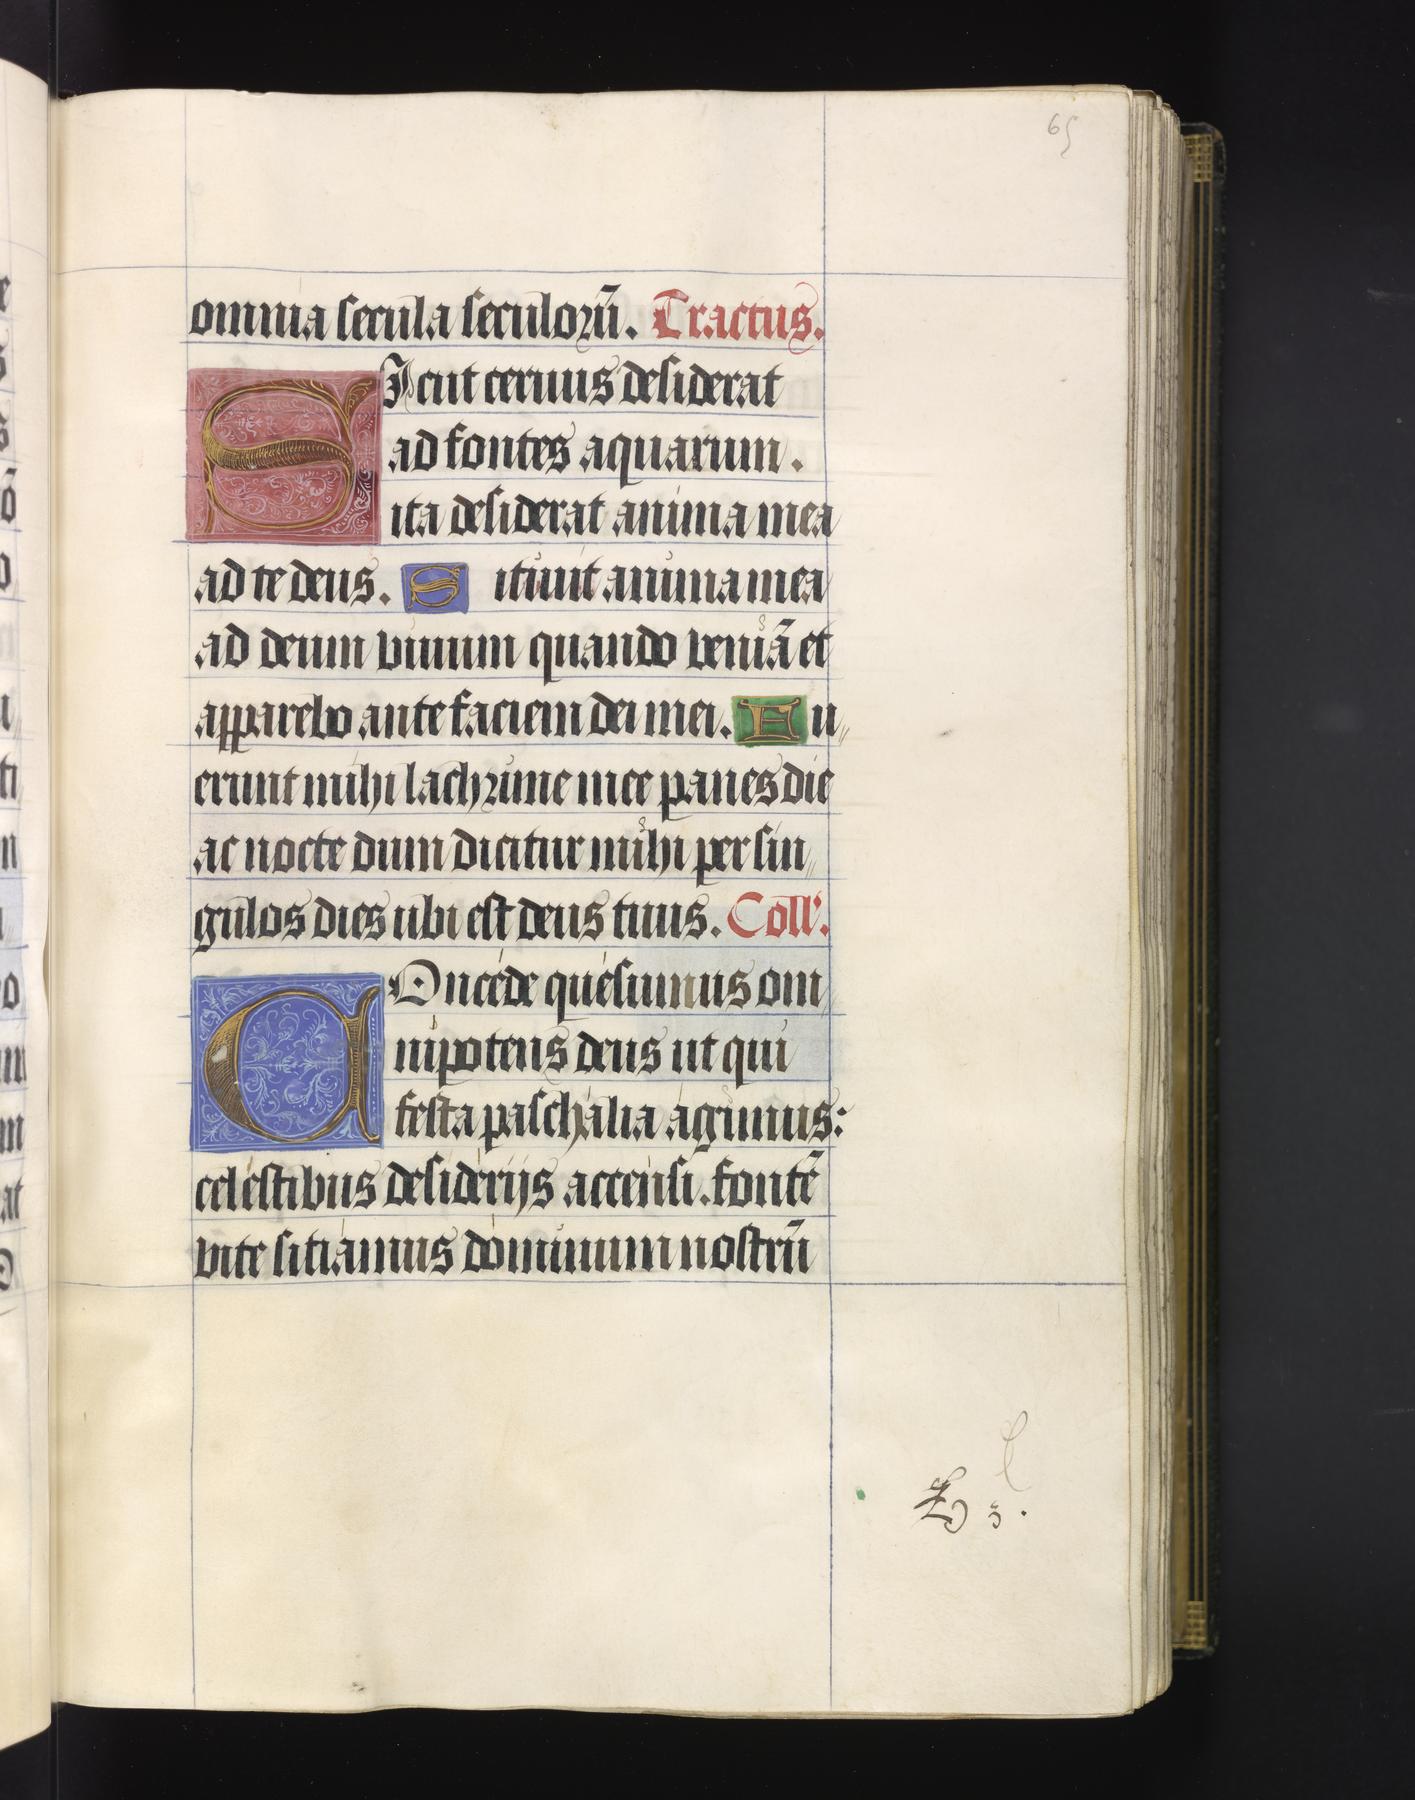 65
omnia secula seculorū. Tractus.
SIcut ceruus desiderat
ad fontes aquarum.
ita desiderat anima mea
ad te deus. Situit anima mea
ad deum viuum quando veniā et
apparebo ante faciem dei mei. Fu„
erunt mihi lachrime mee panes die
ac nocte dum dicitur mihi per sin„
gulos dies ubi est deus tuus. Coll'.
COncede quesumus om
nipotens deus ut qui
festa paschalia agimus:
celestibus desiderijs accensi. fontē
vite sitiamus dominum nostrū